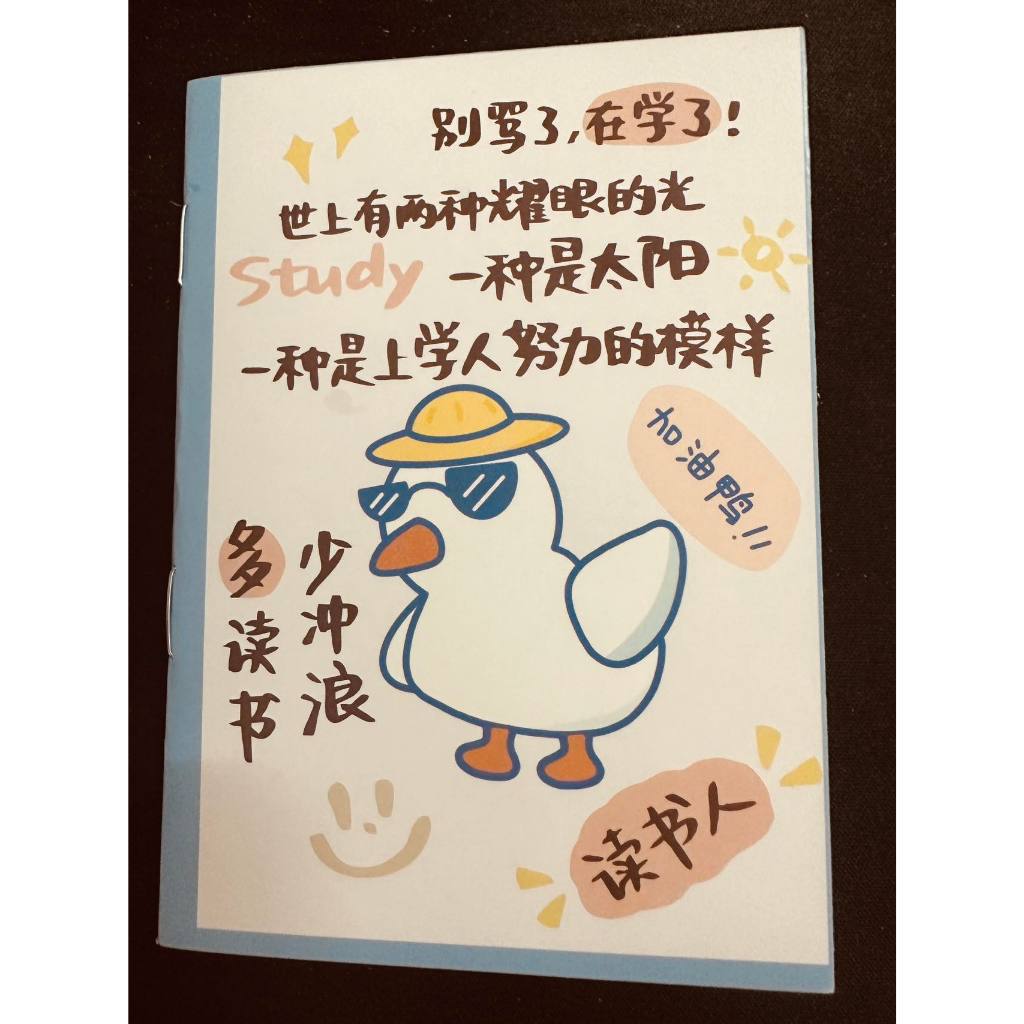 别骂了,在学了!
世上有两种耀眼的光
Study
一种是太阳
一种是上学人努力的模样
加油鸭!!
多读书
少冲浪
读书人